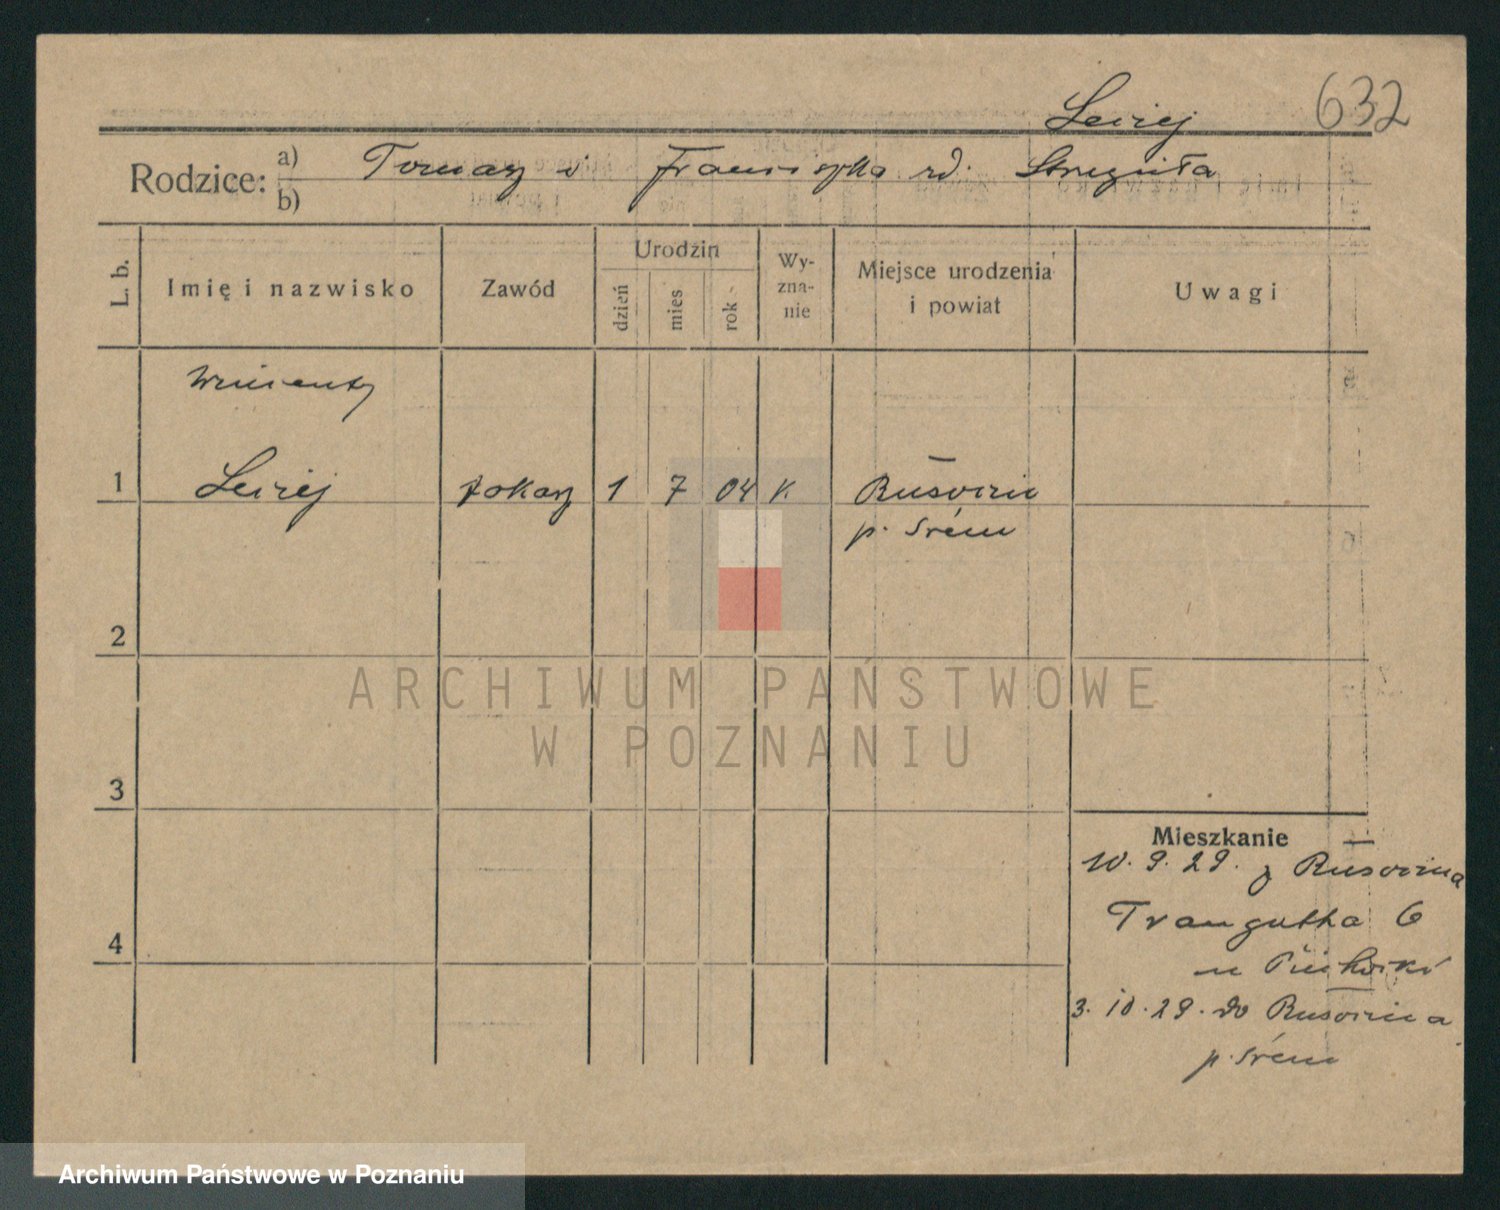 632
Leciej
Rodzice: a) Tomasz i Franciszka rd. Strzguła
b)
L. b.
Imię i nazwisko
Zawód
Urodzin
dzień
mies
rok
Wy-
zna-
nie
Miejsce urodzenia
i powiat
Uwagi
Wincenty
1 Leciej tokarz 1 7 04 k. Rusocin
p. Śrem
2
3
4
Mieszkanie
10. 9. 29. z Rusocina
Traugutha 6
u
3. 10. 29. do Rusocina
p. Śrem
ARCHIWUM PAŃSTWOWE
W POZNANIU
Archiwum Państwowe w Poznaniu